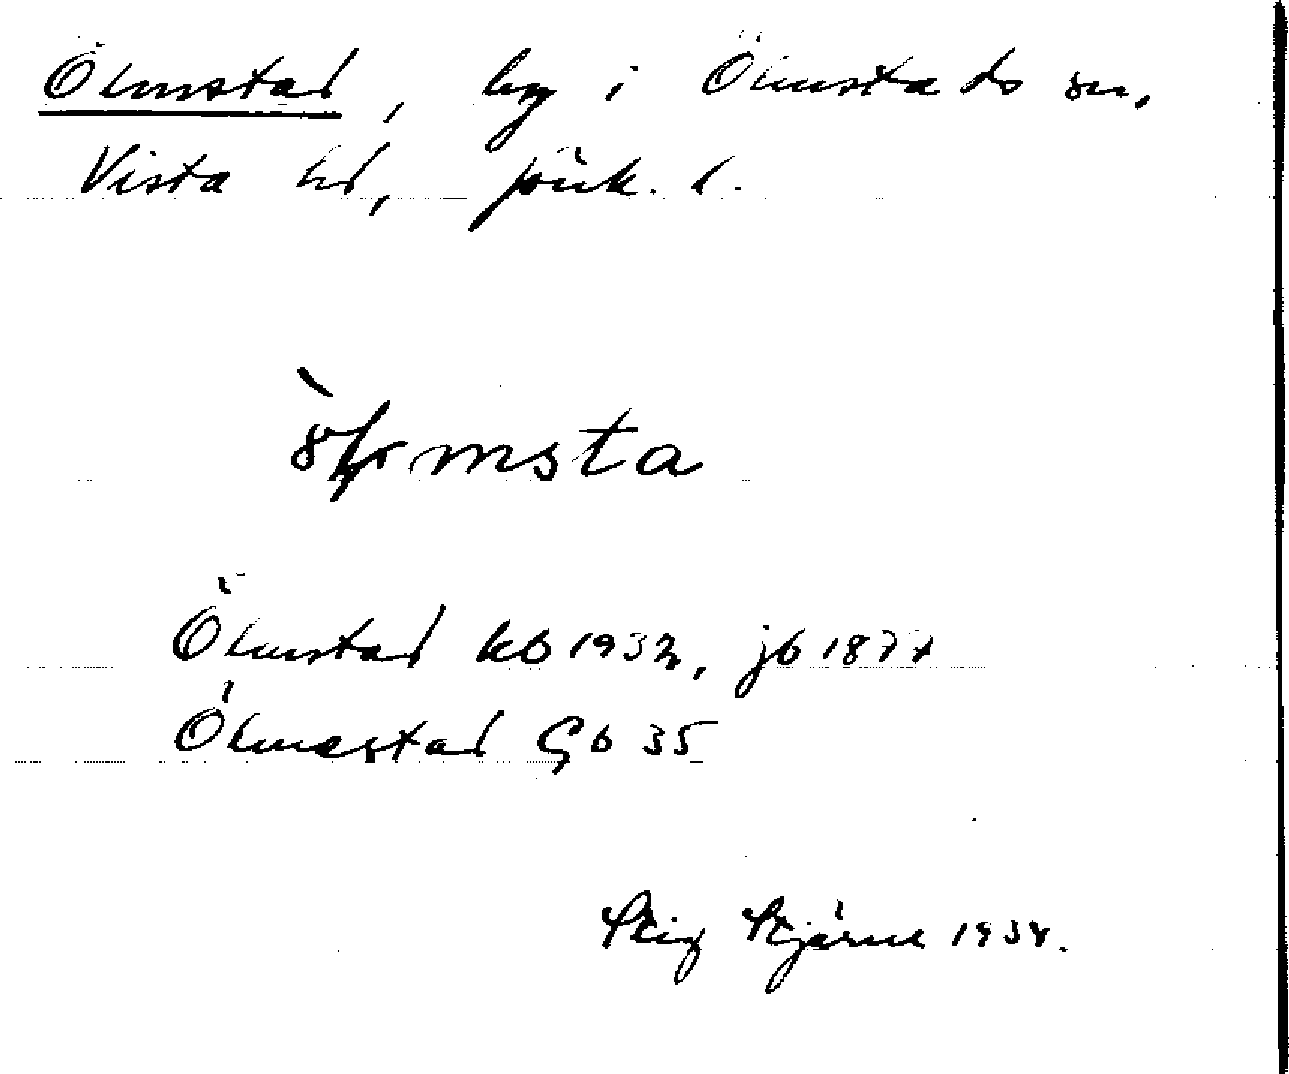 Ölmstad, by i Ölmstads sn,
Vista hd, Jönk. l.
Ölmstad kb 1932, jb 1877
Ölmestad Gb 35
Stig Stjärne 1934.